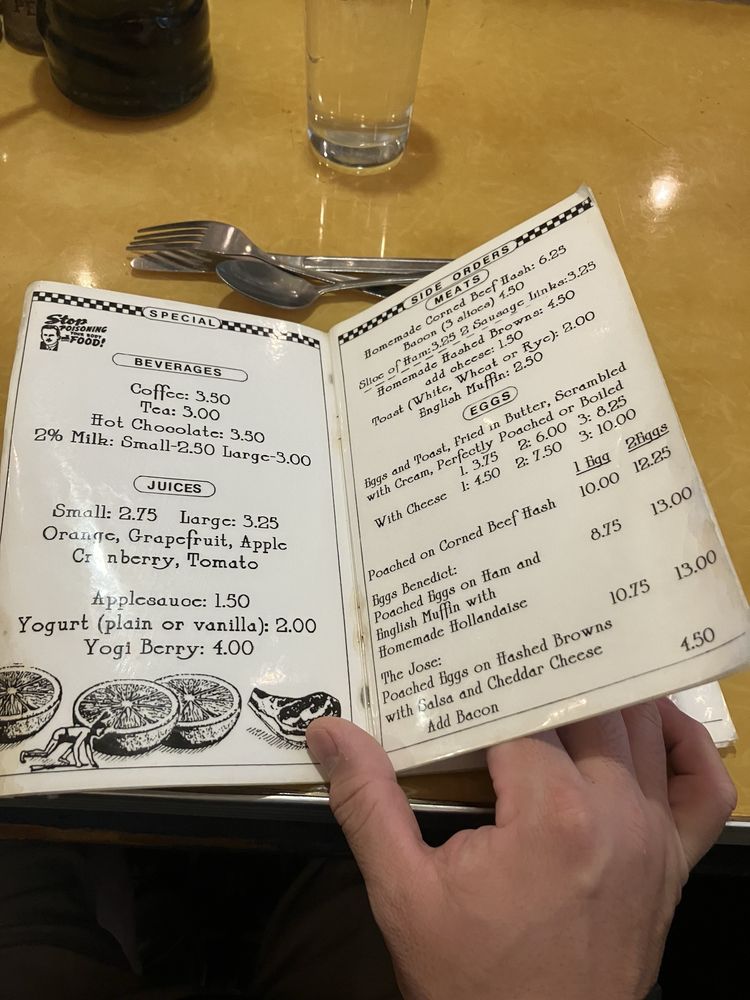 SPECIAL
Stop
POISONING
YOUR BODY
FOOD!
BEVERAGES
Coffee: 3.50
Tea: 3.00
Hot Chocolate: 3.50
2% Milk: Small-2.50 Large-3.00
JUICES
Small: 2.75 Large: 3.25
Orange, Grapefruit, Apple
Cranberry, Tomato
Applesauce: 1.50
Yogurt (plain or vanilla): 2.00
Yogi Berry: 4.00
SIDE ORDERS
MEATS
Homemade Corned Beef Hash: 6.25
Bacon (3 slices) 4.50
Slice of Ham:3.25 2 Sausage Links:3.25
Homemade Hashed Browns: 4.50
add cheese: 1.50
Toast (White, Wheat or Rye): 2.00
English Muffin: 2.50
EGGS
Eggs and Toast, Fried in Butter, Scrambled
with Cream, Perfectly Poached or Boiled
1. 3.75 2: 6.00 3: 8.25
With Cheese 1: 4.50 2: 7.50 3: 10.00
1 Egg 2Eggs
Poached on Corned Beef Hash 10.00 12.25
Eggs Benedict: 8.75 13.00
Poached Eggs on Ham and
English Muffin with
Homemade Hollandaise
The Jose: 10.75 13.00
Poached Eggs on Hashed Browns
with Salsa and Cheddar Cheese
Add Bacon 4.50